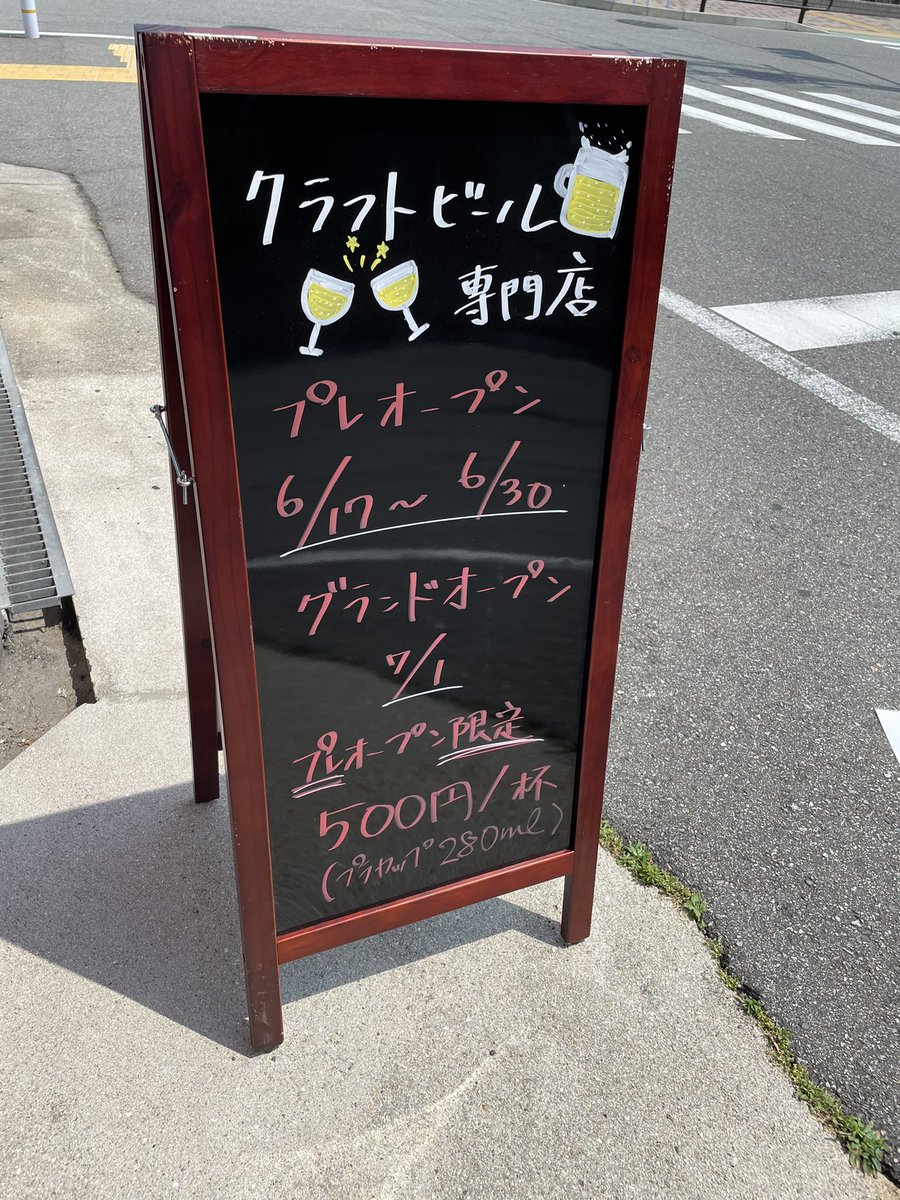 クラフトビール
専門店
プレオープン
6/17〜6/30
グランドオープン
7/1
プレオープン限定
500円/杯
(プラカップ280ml)